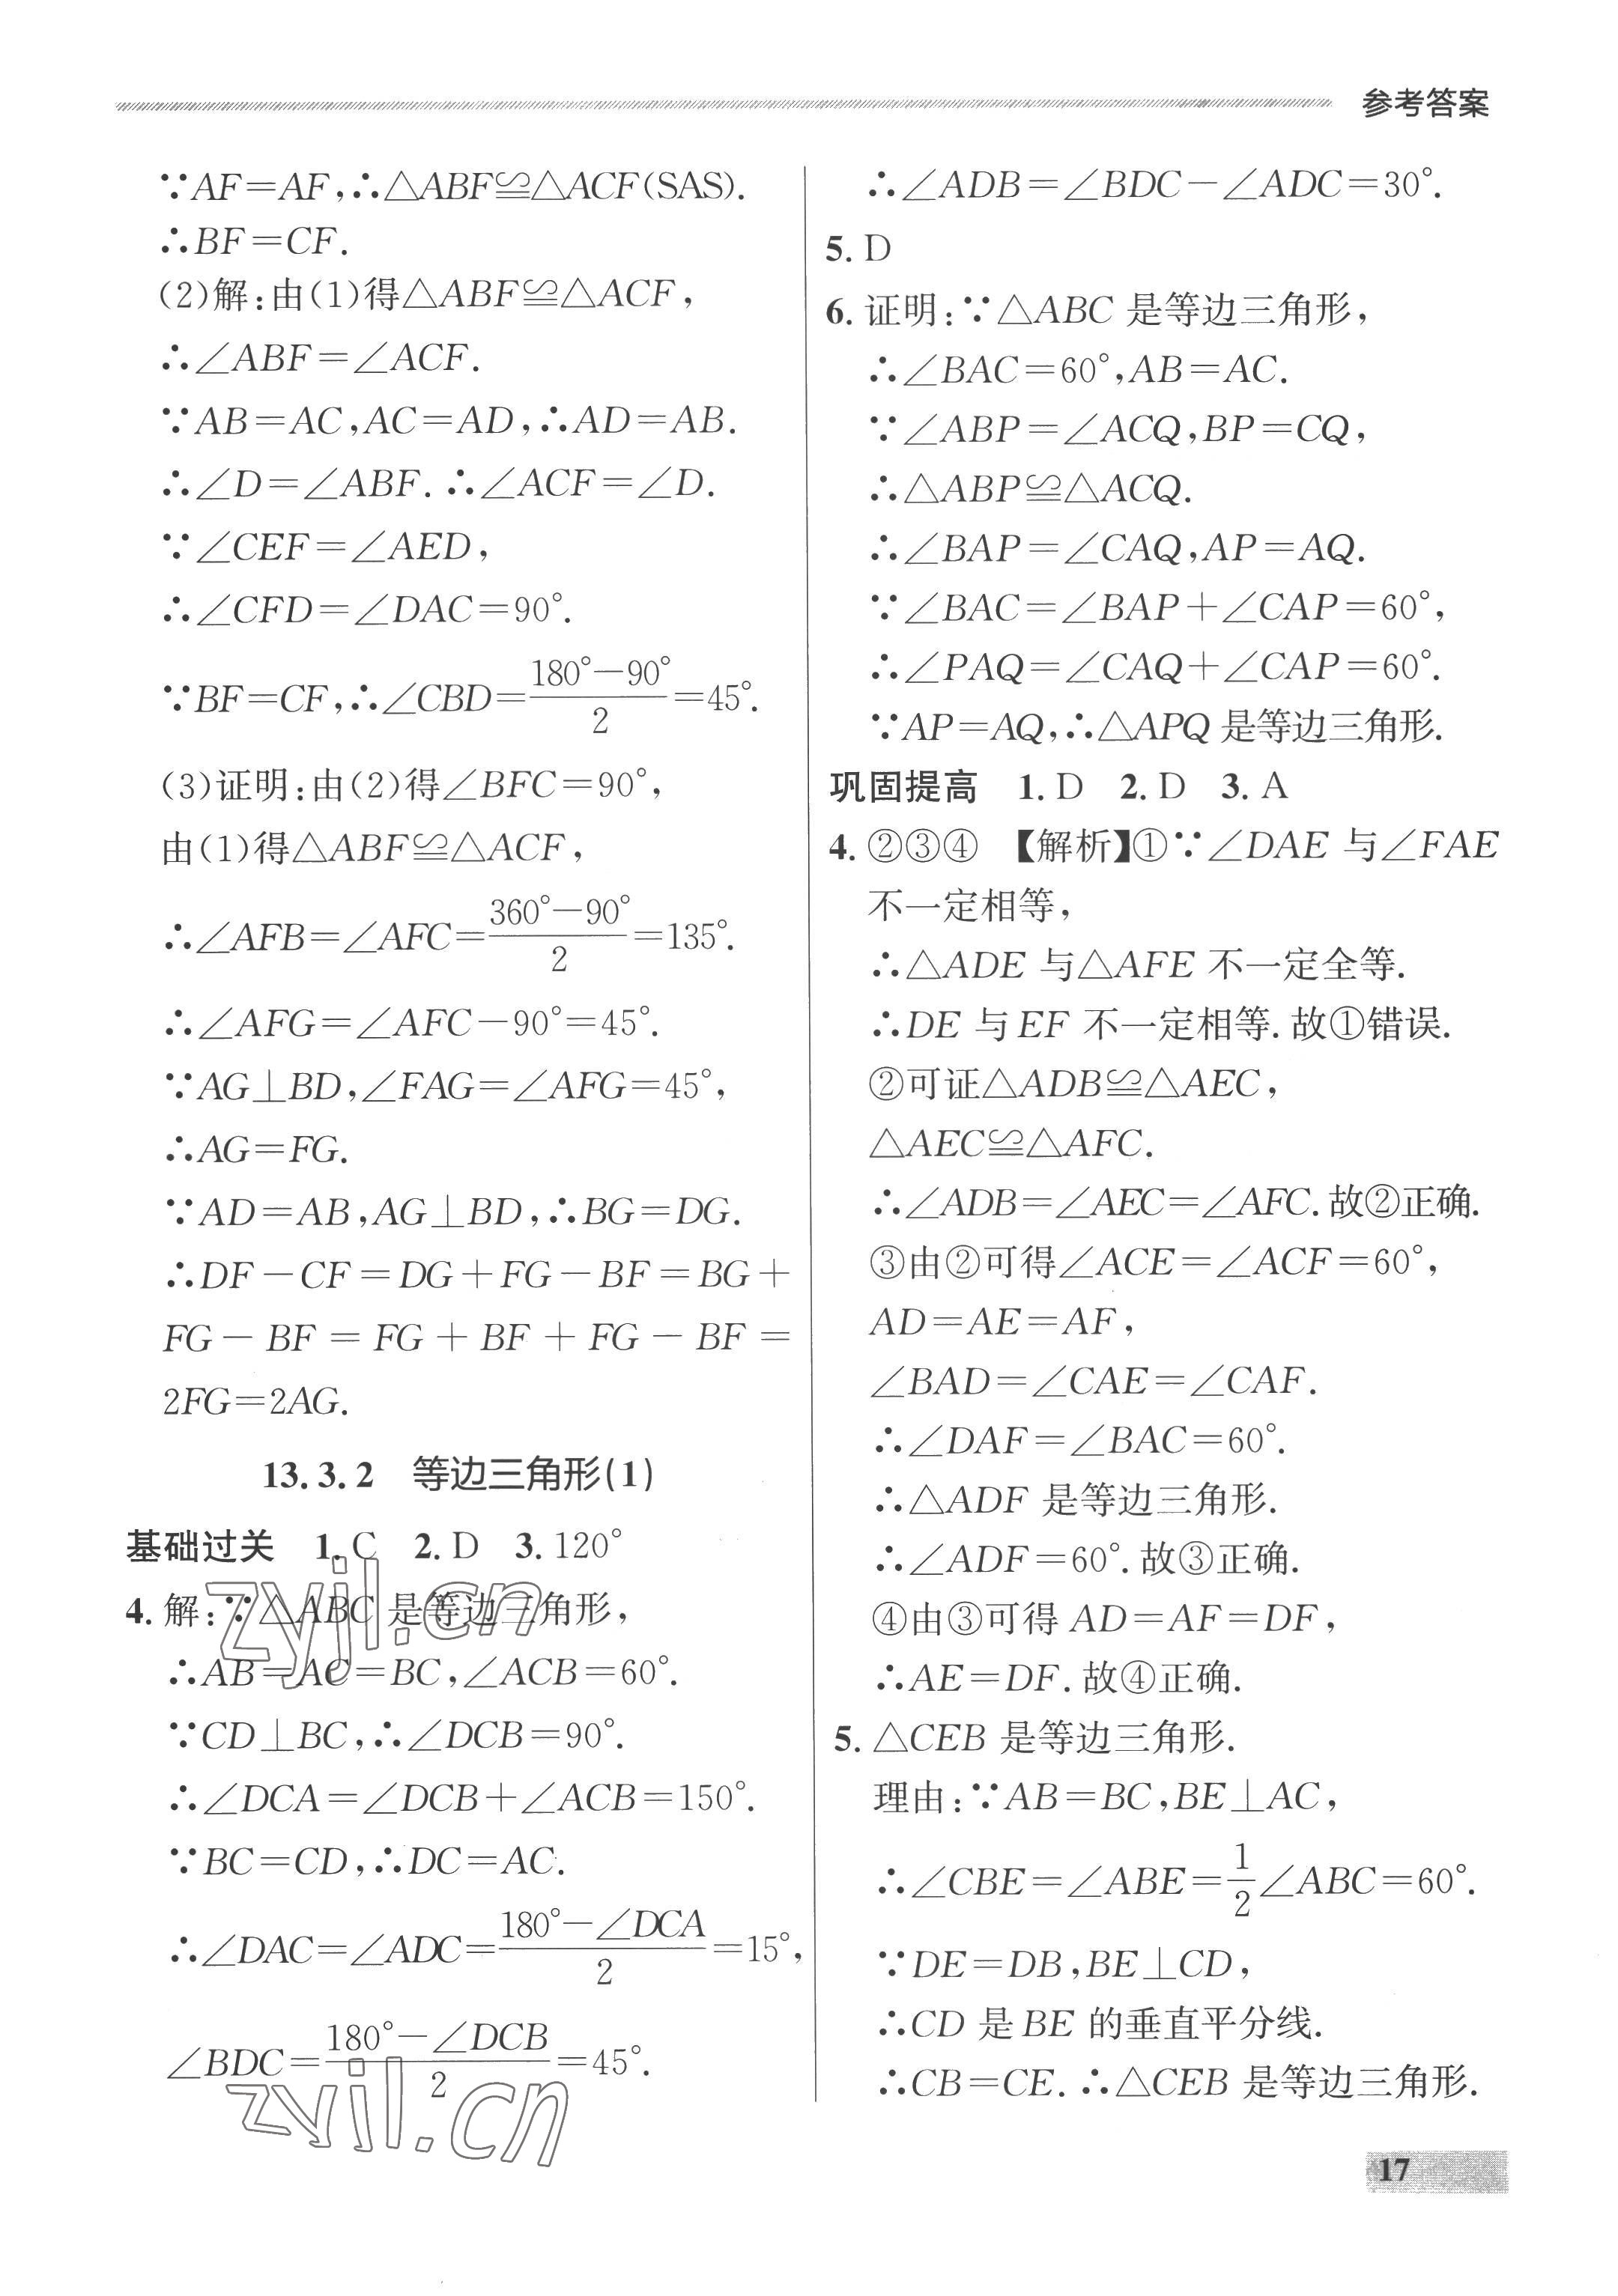 参考答案
∵AF=AF,∴△ABF≌△ACF(SAS).
∴BF=CF.
(2)解:由(1)得△ABF≌△ACF,
∴∠ABF=∠ACF.
∵AB=AC,AC=AD,∴AD=AB.
∴∠D=∠ABF.∴∠ACF=∠D.
∵∠CEF=∠AED,
∴∠CFD=∠DAC=90°.
∵BF=CF,∴∠CBD=\frac{180°-90°}{2}=45°.
(3)证明:由(2)得∠BFC=90°,
由(1)得△ABF≌△ACF,
∴∠AFB=∠AFC=\frac{360°-90°}{2}=135°.
∴∠AFG=∠AFC-90°=45°.
∵AG⊥BD,∠FAG=∠AFG=45°,
∴AG=FG.
∵AD=AB,AG⊥BD,∴BG=DG.
∴DF-CF=DG+FG-BF=BG+
FG-BF=FG+BF+FG-BF=
2FG=2AG.
13.3.2 等边三角形(1)
基础过关 1.C 2.D 3.120°
4.解:∵△ABC是等边三角形,
∴AB=AC=BC,∠ACB=60°.
∵CD⊥BC,∴∠DCB=90°.
∴∠DCA=∠DCB+∠ACB=150°.
∵BC=CD,∴DC=AC.
∴∠DAC=∠ADC=\frac{180°-∠DCA}{2}=15°,
∠BDC=\frac{180°-∠DCB}{2}=45°.
zyjl.cn
zyjl.cn
∴∠ADB=∠BDC-∠ADC=30°.
5.D
6.证明:∵△ABC是等边三角形,
∴∠BAC=60°,AB=AC.
∵∠ABP=∠ACQ,BP=CQ,
∴△ABP≌△ACQ.
∴∠BAP=∠CAQ,AP=AQ.
∵∠BAC=∠BAP+∠CAP=60°,
∴∠PAQ=∠CAQ+∠CAP=60°.
∵AP=AQ,∴△APQ是等边三角形.
巩固提高 1.D 2.D 3.A
4.②③④ 【解析】①∵∠DAE与∠FAE
不一定相等,
∴△ADE与△AFE不一定全等.
∴DE与EF不一定相等.故①错误.
②可证△ADB≌△AEC,
△AEC≌△AFC.
∴∠ADB=∠AEC=∠AFC.故②正确.
③由②可得∠ACE=∠ACF=60°,
AD=AE=AF,
∠BAD=∠CAE=∠CAF.
∴∠DAF=∠BAC=60°.
∴△ADF是等边三角形.
∴∠ADF=60°.故③正确.
④由③可得AD=AF=DF,
∴AE=DF.故④正确.
5.△CEB是等边三角形.
理由:∵AB=BC,BE⊥AC,
∴∠CBE=∠ABE=\frac{1}{2}∠ABC=60°.
∵DE=DB,BE⊥CD,
∴CD是BE的垂直平分线.
∴CB=CE.∴△CEB是等边三角形.
17